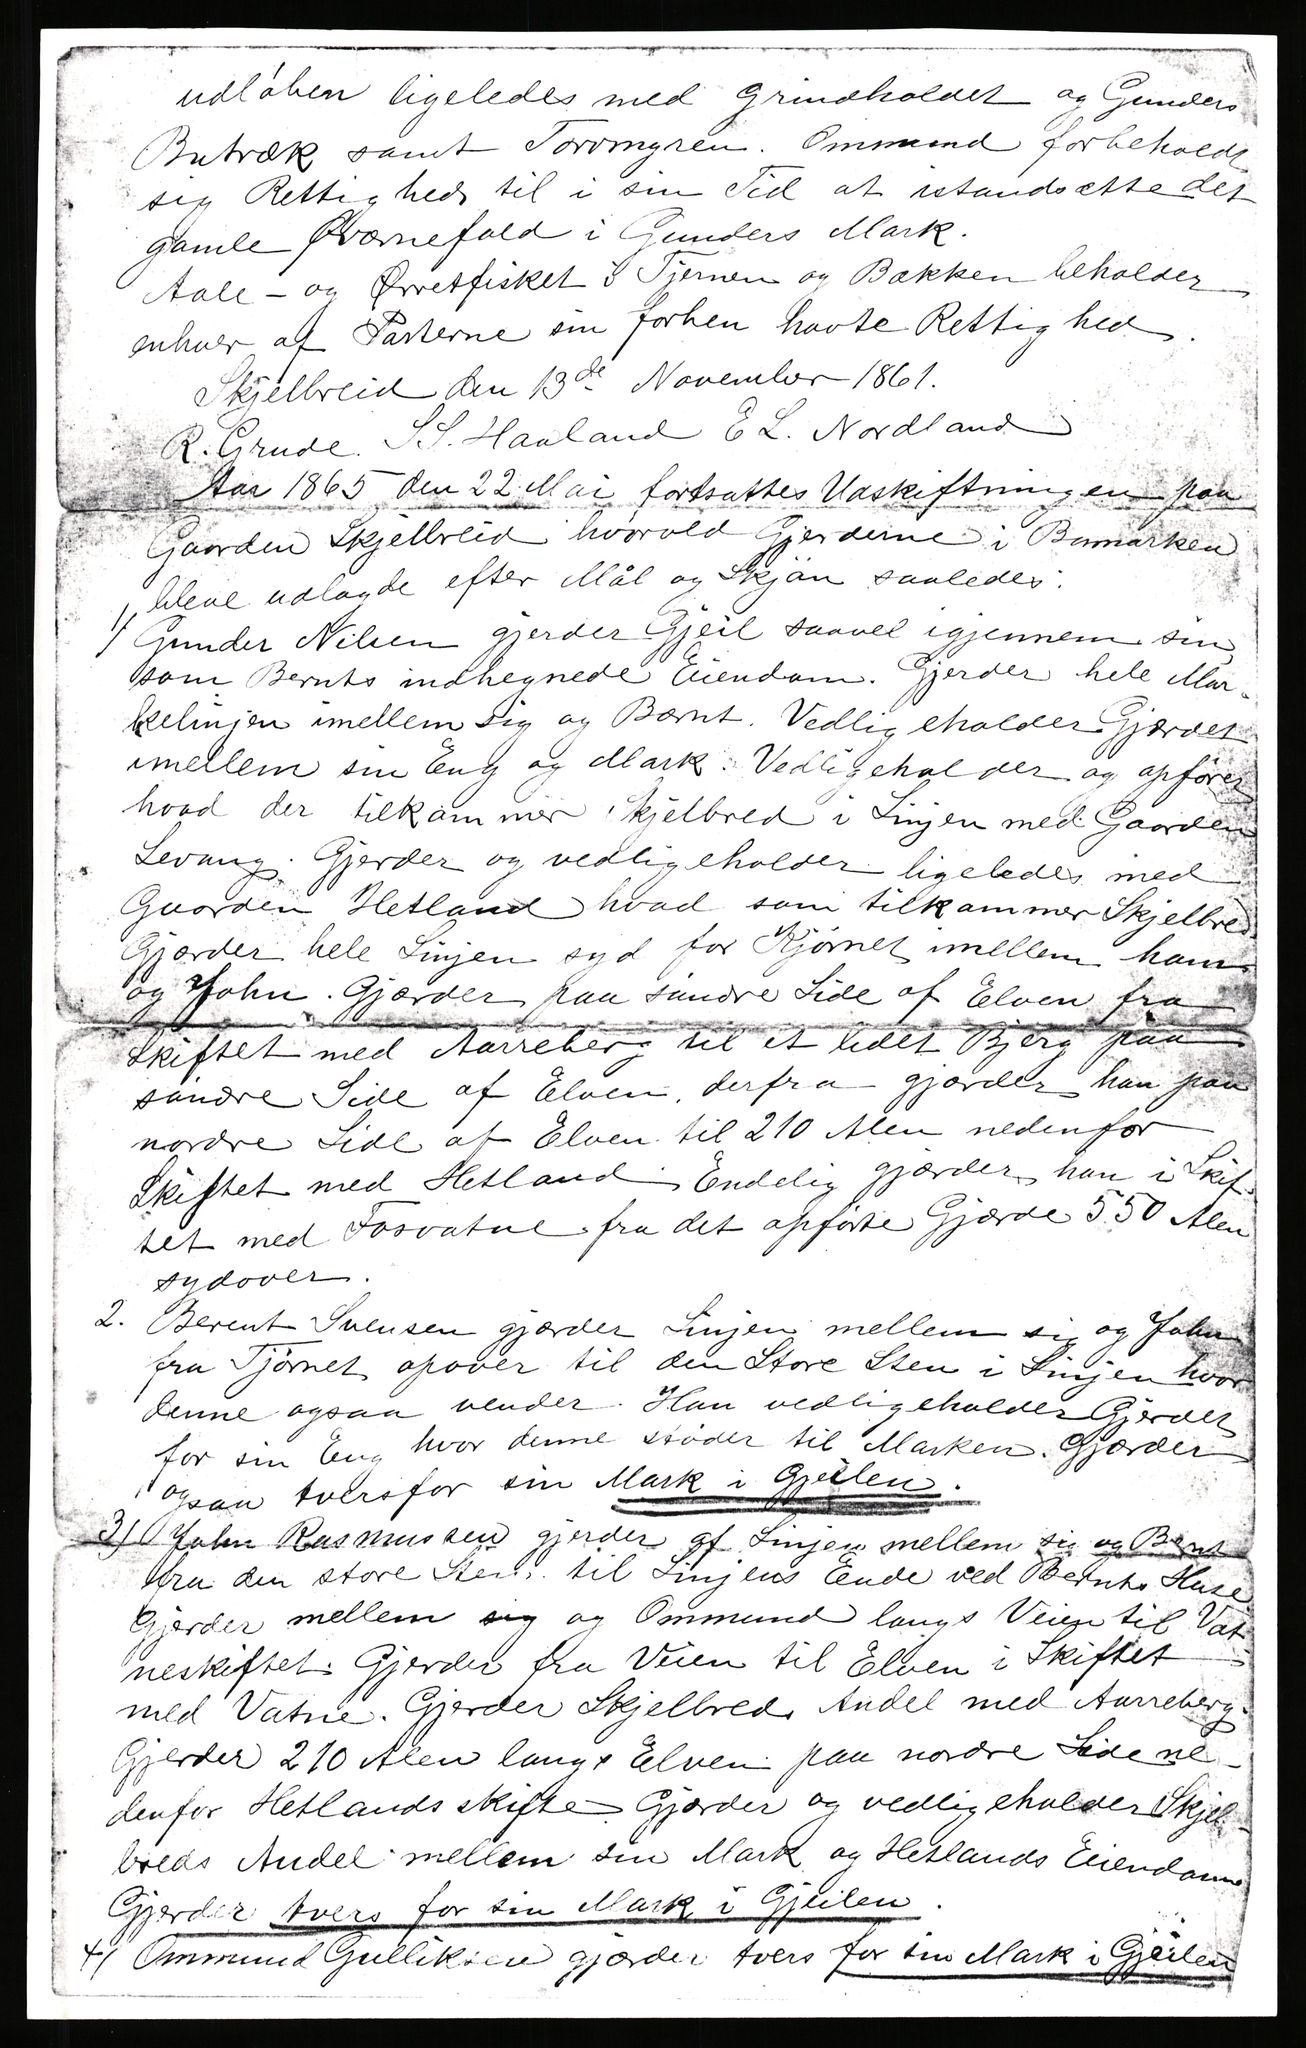 udløben ligeledes med Grindholdet og Gunders
Butræk samt Torvmyren. Ommund forbeholdt
sig Rettighed til i sin Tid at istandsætte det
gamle Qværnefald i Gunders Mark.
Aale- og Ørretfisket i Tjernen og Bækken beholder
enhver af Parterne sin forhen havte Rettighed.
Skjelbreid den 13de November 1861.
R. Grude. S S. Haaland E L. Nordland
Aar 1865 den 22 Mai fortsattes Udskiftningen paa
Gaarden Skjelbreid hvorved Gjerderne i Bumarken
bleve udlagde efter Mål og Skjøn saaledes:
1) Gunder Nilsen gjerder Gjeil saavel igjennem sin
som Bernts indhegnede Eiendom. Gjerder hele Mar-
kelinjen imellem sig og Bernt. Vedligeholder Gjærdet
imellem sin Eng og Mark. Vedligeholder og opfører
hvad der tilkommer Skjelbred i Linjen med Gaarden
Levang. Gjerder og vedligeholder ligeledes med
Gaarden Hetland hvad som tilkommer Skjelbred.
Gjærder hele Linjen syd for Kjørnet imellem ham
og John. Gjærder paa søndre Side af Elven fra
Skiftet med Aarreberg til et lidet Bjerg paa
søndre Side af Elven, derfra gjærder han paa
nordre Side af Elven til 210 Alen nedenfor
Skiftet med Hetland. Endelig gjærder han i Skif-
tet med Fosvatne fra det opførte Gjærde 550 Alen
sydover.
2. Berent Svensen gjærder Linjen mellem sig og John
fra Tjørnet opover til den Store Sten i Linjen hvor
denne ogsaa vender. Han vedligeholder Gjerdet
for sin Eng hvor denne støder til Marken. Gjærder
ogsaa tversfor sin Mark i Gjeilen.
3) John Rasmussen gjerder af Linjen mellem sig og Bernt
fra den store Sten til Linjens Ende ved Bernts Huse
Gjerder mellem sig og Ommund langs Veien til Vat-
neskiftet. Gjerder fra Veien til Elven i Skiftet
med Vatne. Gjerder Skjelbreds Andel med Aarreberg.
Gjerder 210 Alen langs Elven paa nordre Side ne-
denfor Hetlands skifte. Gjærder og vedligeholder Skjel-
breds Andel mellem sin Mark og Hetlands Eiendom
Gjerder tvers for sin Mark i Gjeilen.
4) Ommund Gulliksen gjærder tvers for sin Mark i Gjeilen